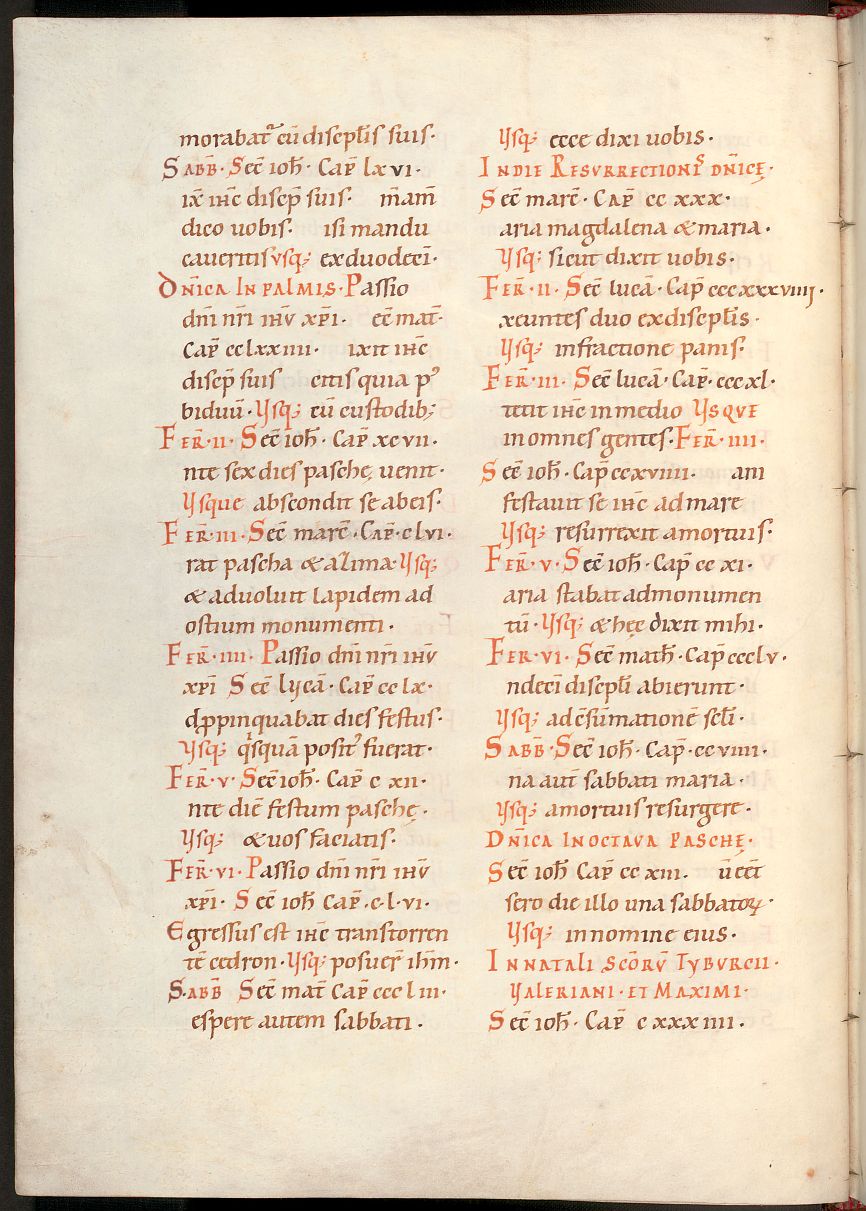 morabat᷑ cū discipl̄is suis·
Sabb̄· Sec̄ ioh̄· Cap̄ lxvi·
ix̄ ih̄c discip̄ suis· m̄am̄
dico uobis· isi mandu
caueritis usq; ex duodeci·
Dn̄ica in palmis· Passio
dn̄i nr̄i ih̄u xp̄i· ec̄ mat̄·
Cap̄ cclxxiiii· ixit ih̄c
discip̄ suis citis quia p᷒
biduū· Vsq; cū custodib;
Fer̄·ii· Sec̄ ioh̄· Cap̄ xcvii·
nte sex dies paschę uenit·
Vsque abscondit se ab eis·
Fer̄·iii· Sec̄ marc̄· Cap̄·clvi·
rat pascha & azima Vsq;
& aduoluit lapidem ad
ostium monumenti·
Fer̄·iiii· Passio dn̄i nr̄i ih̄u
xp̄i Sec̄ lucā· Cap̄ cclx·
dp̄pinquabat dies festus·
Vsq; q̇squā posit᷒ fuerat·
Fer̄·v· Sec̄ ioh̄· Cap̄ cxii·
nte diē festum paschę·
Vsq; & uos faciatis·
Fer̄·vi· Passio dn̄i nr̄i ih̄u
xp̄i· Sec̄ ioh̄ Cap̄·c·l·vi·
Egressus est ih̄c trans torren
tē cedron· Vsq; posuer̄ ih̄m·
S·abb̄ Sec̄ mat̄ Cap̄ ccclii·
espere autem sabbati·
Vsq; ecce dixi uobis·
In die Resurrectionis dn̄icę·
Sec̄ marc̄· Cap̄ ccxxx·
aria magdalena & maria·
Vsq; sicut dixit uobis·
Fer̄·ii· Sec̄ lucā· Cap̄ cccxxxviiii·
xeuntes duo ex discipl̄is·
Vsq; in fractione panis·
Fer̄·iii· Sec̄ lucā· Cap̄· cccxl·
tetit ih̄c in medio Vsque
in omnes gentes· Fer̄·iiii·
Sec̄ ioh̄· Cap̄ ccxviiii· ani
festauit se ih̄c ad mare
Vsq; resurrexit a mortuis·
Fer̄·v· Sec̄ ioh̄· Cap̄ ccxi·
aria stabat ad monumen
tū· Vsq; & hęc dixit mihi·
Fer̄·vi· Sec̄ math̄· Cap̄ ccclv·
ndeci discipl̄i abierunt·
Vsq; ad c̄sūmationē scl̄i·
Sabb̄· Sec̄ ioh̄· Cap̄·ccviiii·
na aut̄ sabbati maria·
Vsq; a mortuis resurgere·
Dn̄ica in octava paschę·
Sec̄ ioh̄ Cap̄ ccxiii· ū cēt
sero die illo una sabbatoꝝ·
Vsq; in nomine eius·
In natali sc̄orū Tyburcii·
Valeriani· et Maximi·
Sec̄ ioh̄· Cap̄ cxxxiiii·